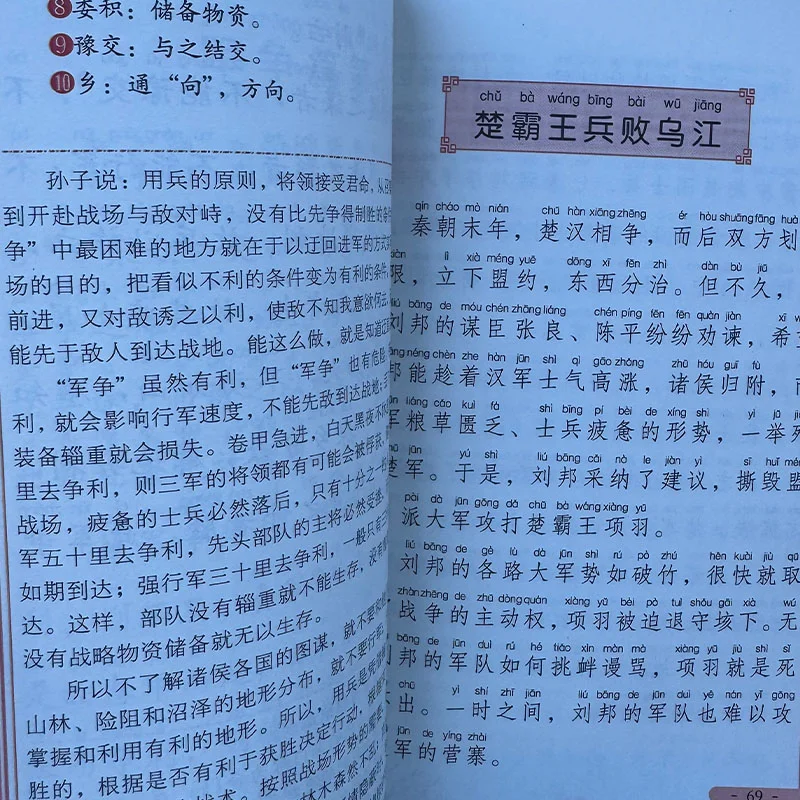 ⑧委积：储备物资。
⑨豫交：与之结交。
⑩乡：通“向”，方向。
孙子说：用兵的原则，将领接受君命，从
到开赴战场与敌对峙，没有比先争得制胜的条
争”中最困难的地方就在于以迂回进军的方式
场的目的，把看似不利的条件变为有利的条件
前进，又对敌诱之以利，使敌不知我意欲何去
能先于敌人到达战地。能这么做，就是知道
“军争”虽然有利，但“军争”也有危险
利，就会影响行军速度，不能先敌到达战地；
装备辎重就会损失。卷甲急进，白天黑夜不
里去争利，则三军的将领都有可能会被俘获
战场，疲惫的士兵必然落后，只有十分之一
军五十里去争利，先头部队的主将必然受
如期到达；强行军三十里去争利，一般只有
达。这样，部队没有辎重就不能生存，没有
没有战略物资储备就无以生存。
所以不了解诸侯各国的图谋，就不要
山林、险阻和沼泽的地形分布，就不要行军
掌握和利用有利的地形。所以，用兵是凭
胜的，根据是否有利于获胜决定行动，根据
战术。按照战场形势的需要
林木森然不乱
chǔ bà wáng bīng bài wū jiāng
楚霸王兵败乌江
qín cháo mò nián chǔ hàn xiāng zhēng ér hòu shuāng fāng huà
秦朝末年，楚汉相争，而后双方划
lì xià méng yuē dōng xī fēn zhì dàn bù jiǔ
立下盟约，东西分治。但不久，
liú bāng de móu chén zhāng liáng chén píng fēn fēn quàn jiàn xī
刘邦的谋臣张良、陈平纷纷劝谏，希
bāng néng chèn zhe hàn jūn shì qì gāo zhǎng zhū hóu guī fù
邦能趁着汉军士气高涨，诸侯归附，
liáng cǎo kuì fá shì bīng pí bèi de xíng shì yì jǔ
军粮草匮乏、士兵疲惫的形势，一举
jūn yú shì liú bāng cǎi nà le jiàn yì sī huǐ
楚军。于是，刘邦采纳了建议，撕毁盟
pài dà jūn gōng dǎ chǔ bà wáng xiàng yǔ
派大军攻打楚霸王项羽。
liú bāng de gè lù dà jūn shì rú pò zhú hěn kuài jiù qǔ
刘邦的各路大军势如破竹，很快就取
zhàn zhēng de zhǔ dòng quán xiàng yǔ bèi pò tuì shǒu gāi xià wú
战争的主动权，项羽被迫退守垓下。无
bāng de jūn duì rú hé tiǎo xìn màn mà xiàng yǔ jiù shì sǐ
邦的军队如何挑衅谩骂，项羽就是死
chū yì shí zhī jiān liú bāng de jūn duì yě nán yǐ gōng
出。一时之间，刘邦的军队也难以攻
jūn de yíng zhài
军的营寨。
- 69 -